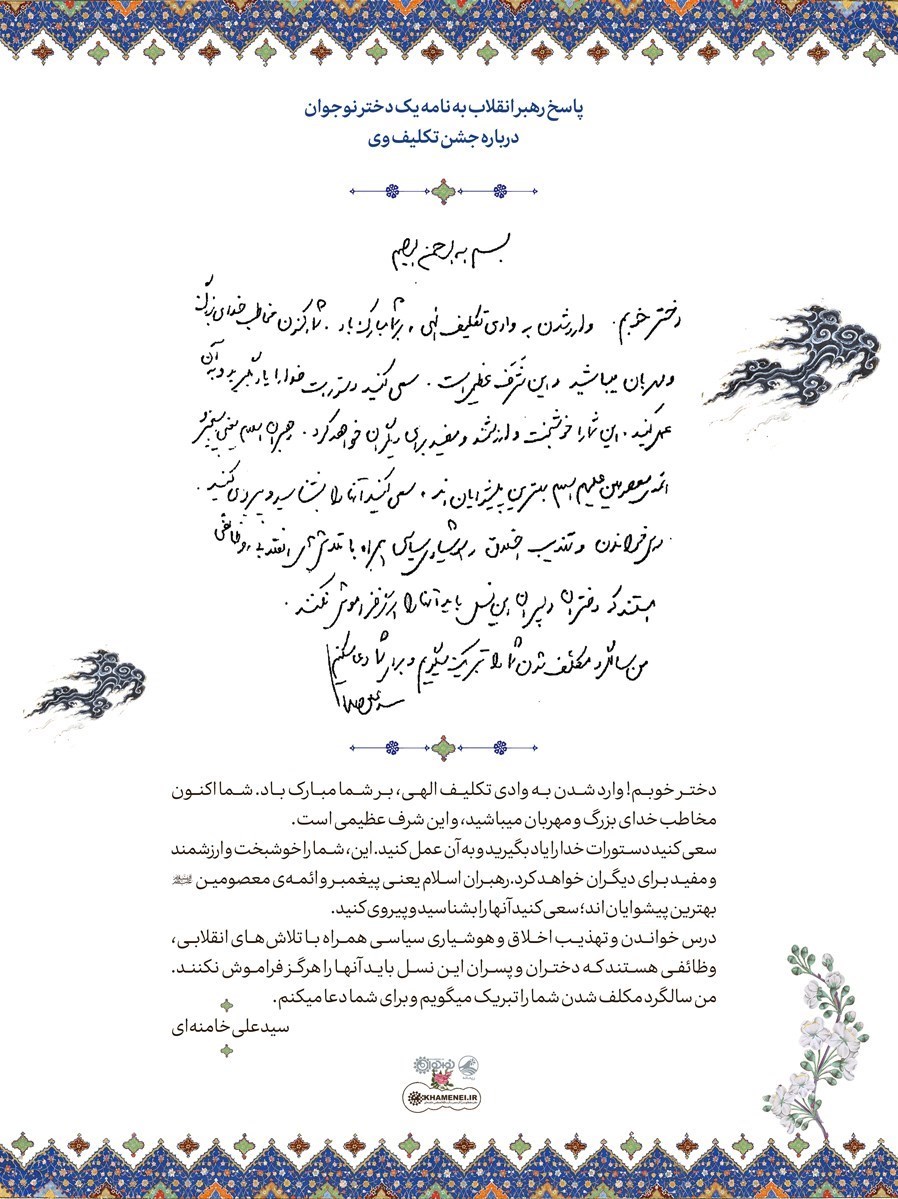 پاسخ رهبر انقلاب به نامه یک دختر نوجوان
درباره جشن تکلیف وی
بسم الله الرحمن الرحیم
دختر خوبم. وارد شدن به وادی تکلیف الهی، بر شما مبارک باد. شما اکنون مخاطب خدای بزرگ
و مهربان میباشید و این شرف عظیمی است. سعی کنید دستورات خدا را یاد بگیرید و به آن
عمل کنید. این شما را خوشبخت و ارزشمند و مفید برای دیگران خواهد کرد. رهبران اسلام یعنی پیغمبر و
ائمه‌ی معصومین علیهم السلام بهترین پیشوایان اند، سعی کنید آنها را بشناسید و پیروی کنید.
درس خواندن و تهذیب اخلاق و هوشیاری سیاسی همراه با تلاش‌های انقلابی، وظائفی
هستند که دختران و پسران این نسل باید آنها را هرگز فراموش نکنند.
من سالگرد مکلف شدن شما را تبریک میگویم و برای شما دعا میکنم
دختر خوبم! وارد شدن به وادی تکلیف الهی، بر شما مبارک باد. شما اکنون
مخاطب خدای بزرگ و مهربان میباشید، و این شرف عظیمی است.
سعی کنید دستورات خدا را یاد بگیرید و به آن عمل کنید. این، شما را خوشبخت و ارزشمند
و مفید برای دیگران خواهد کرد. رهبران اسلام یعنی پیغمبر و ائمه‌ی معصومین
بهترین پیشوایان اند؛ سعی کنید آنها را بشناسید و پیروی کنید.
درس خواندن و تهذیب اخلاق و هوشیاری سیاسی همراه با تلاش‌های انقلابی،
وظائفی هستند که دختران و پسران این نسل باید آنها را هرگز فراموش نکنند.
من سالگرد مکلف شدن شما را تبریک میگویم و برای شما دعا میکنم.
سیدعلی خامنه‌ای
KHAMENEI.IR